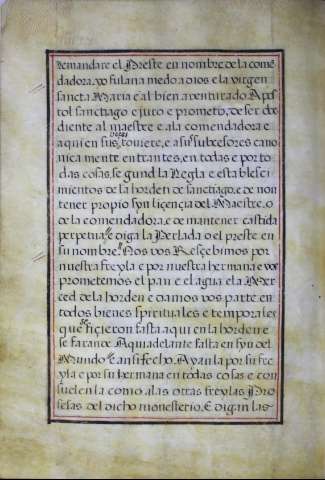 demandare el Preste en nombre de la comē
dadora, yo fulana me do a dios e la virgen
sancta Maria e al bien aventurado Apos
tol sanctiago e juro e prometo, de ser obe
diente al maestre e a la comendadora e
a quien sus veces toviere, e a sus subcesores cano
nica mente entrantes, en todas e por to
das cosas, segund la Regla e establesci
mientos de la horden de sanctiago, e de non
tener propio syn licençia del Maestre, o
de la comendadora, e de mantener castida
perpetua, e diga la Perlada o el preste en
su nombre. Nos vos Resçebimos por
nuestra freyla e por nuestra hermana e vos
prometemos el pan e el agua e la Mer
ced de la horden e damos vos parte en
todos bienes spirituales e temporales
que se ficieron fasta aqui en la horden e
se faran de Aqui adelante fasta en fyn del
Mundo, E ansi fecho, Ayan la por su fre
yla e por su hermana en todas cosas e con
suelen la como a las otras freylas Pro
fesas del dicho monesterio, E digan las